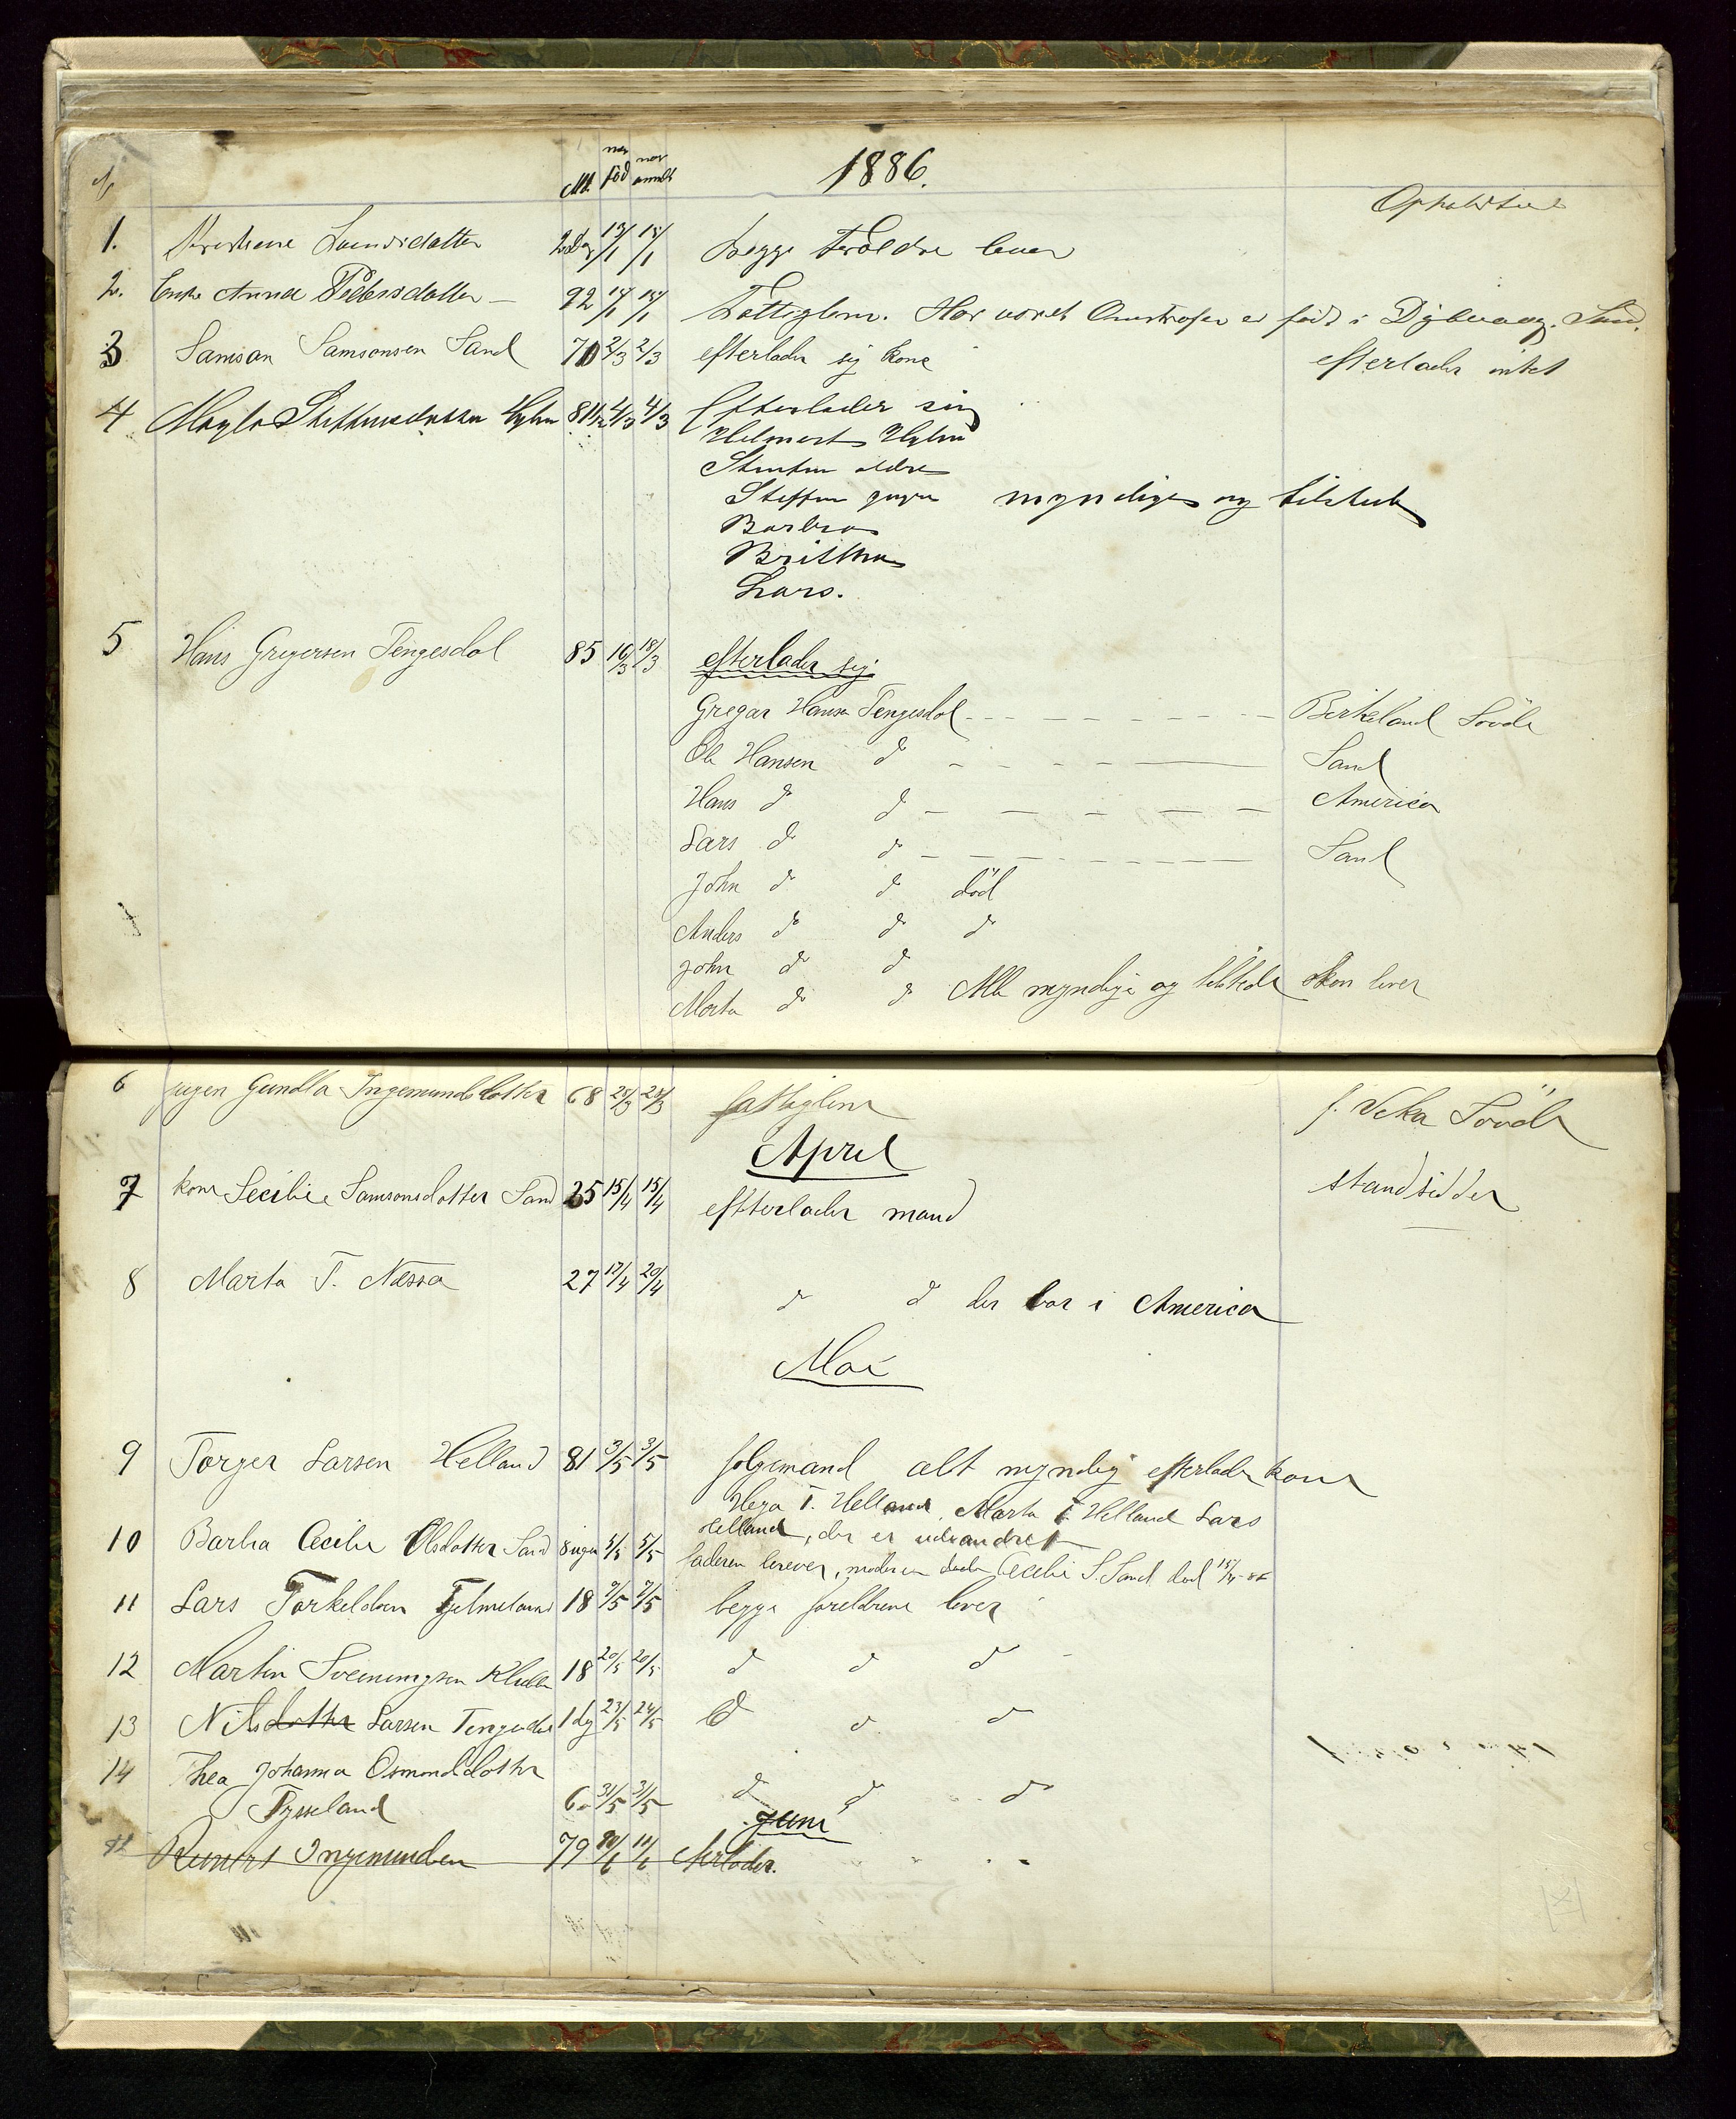 1886.
Alt. naar död naar anmeldt
Opholdsted
1. Larsdatter 13/1 18/1 begge Forældre lever
2. Enke Anna Pedersdatter - 92 15/1 18/1 Fattiglem. Har været er född i Sand.
3 Samson Samsonsen Sand 70 2/3 2/3 efterlader sig kone efterlader intet
4 81½ 4/3 4/3 Efterlader sig
Helmert
ældre
Steffen yngre myndige og tilstede
Barbra
Britha
Lars.
5 Hans Gregersen Tengesdal 85 16/3 18/3 efterlader sig
Gregar Hansen Tengesdal - - - - - - - - - Birkeland Søvde
Ole Hansen do - - - - - Sand
Hans do do - - - - - America
Lars do do - - - - - Sand
John do do död
Anders do do do
John do do
Marta do do Alle myndige og tilstede kon lever
6 pigen Gundla Ingemundsdotter 68 25/3 25/3 fattiglem f. Veka Søvde
April
7 kone Secilie Samsonsdotter Sand 25 15/4 15/4 effterlader mand standsidder
8 Marta T. Næssa 27 17/4 20/4 do do der bor i America
Mai
9 Torger Larsen Helland 81 3/5 3/5 folgemand alt myndig efterlader kone
Helga T. Helland, Marta T Helland Lars
Helland, der er udvandret
10 Barbra Cecilie Olsdotter Sand 3 uger 5/5 5/5 faderen lever, moderen Cecilie S. Sand död 15/4-86
11 Lars Torkeldsen Fjelmeland 18 7/5 7/5 begge foreldrene lever
12 Martin Sveinungsen 18 20/5 20/5 do do do -
13 Nilsdotter Larsen Tengesdal 1 dg 23/5 24/5 do do do
14 Thea Johanna Osmundsdotter
Tysseland 6 31/5 31/5 do do do
Juni
Ingemundsen 79 10/6 11/6 efterlader.